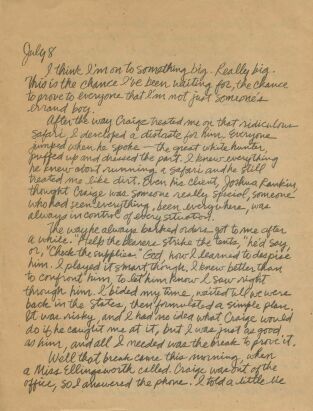 July 8
I think I'm on to something big. Really big.
This is the chance I've been waiting for, the chance
to prove to everyone that I'm not just someone's
errand boy.
After the way Craige treated me on that ridiculous
safari, I developed a distaste for him. Everyone
jumped when he spoke — the great white hunter
puffed up and dressed the part. I knew everything
he knew about running a safari and he still
treated me like dirt. Even his client, Joshua Rankin,
thought Craige was someone really special, someone
who had seen everything, been everywhere, was
always in control of every situation.
The way he always barked orders got to me after
a while. "Help the bearers strike the tents," he'd say,
or, "Check the supplies." God, how I learned to despise
him. I played it smart though. I knew better than
to confront him, to let him know I saw right
through him. I bided my time, waited till we were
back in the States, then formulated a simple plan.
It was risky, and I had no idea what Craige would
do if he caught me at it, but I was just as good
as him, and all I needed was the break to prove it.
Well that break came this morning, when
a Miss Ellingsworth called. Craige was out of the
office, so I answered the phone. I told a little lie